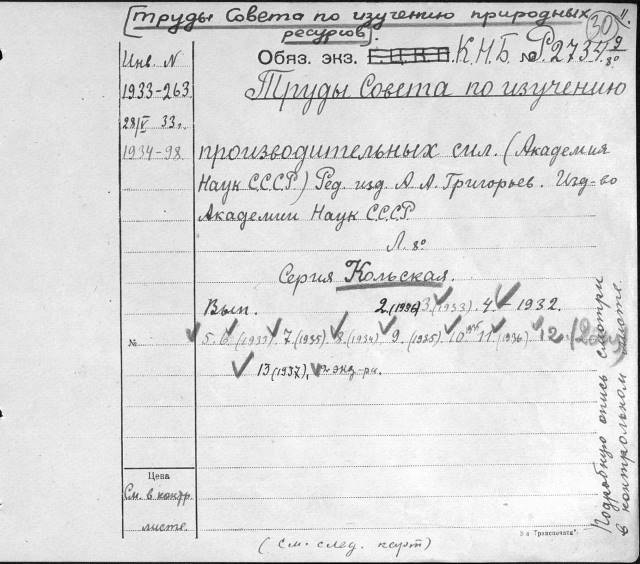 [Труды Совета по изучению природных
ресурсов]. 30 II.
Инв. N Обяз. экз. Г.Ц.К.П. К.Н.Б. № Р.2734 9/8°
1933-263 Труды Совета по изучению
28/V 33 г.
1934-98 производительных сил. (Академия
Наук СССР) Ред. изд. А. А. Григорьев. Изд-во
Академии Наук СССР
Л. 8°
Серия Кольская.
Вып. 2 (1936) 3 (1933). 4. - 1932.
№ 5. 6. (1933) 7. (1935). 8. (1934) 9. (1935). 10 1935 11. (1936) 12. (2 экз)
13 (1937), 2 экз-ра.
Подробную опись смотри
в контрольном листе.
Цена
См. в контр.
листе.
З-я Транспечать".
(См. след. карт)